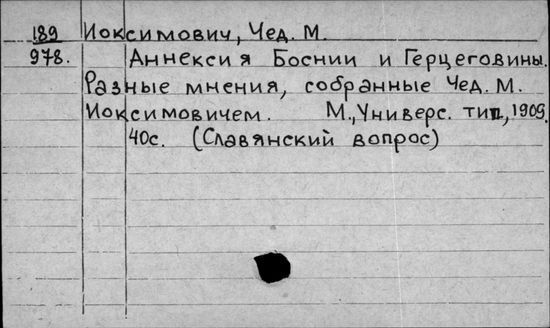 189 Иоксимович, Чед. М.
978. Аннексия Боснии и Герцеговины.
Разные мнения, собранные Чед. М.
Иоксимовичем. М., Универс. тип, 1909.
40с. (Славянский вопрос)